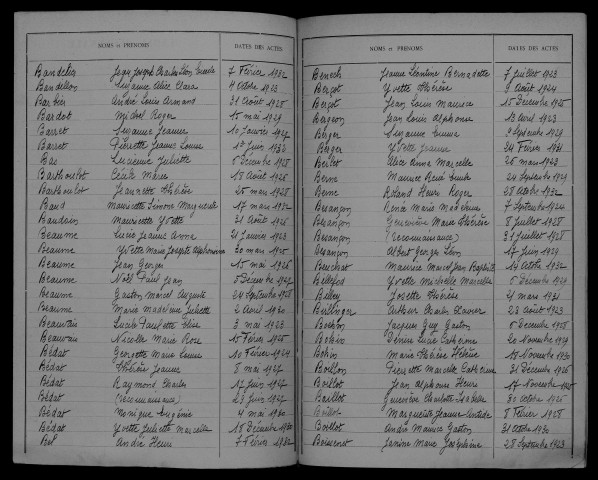 NOMS et PRÉNOMS DATES DES ACTES
Bandelier Jean Joseph Charles Léon 7 Février 1932
Bandellon Suzanne Alice Clara 4 Octobre 1923
Barbier André Louis Armand 31 Août 1928
Bardot Michel Roger 15 mai 1929
Barret Suzanne Jeanne 10 Janvier 1927
Barret Pierrette Jeanne Louise 1932
Bas Lucienne Juliette 5 Décembre 1928
Bartholot Cécile Marie 18 Août 1926
Bartholot Jeannette Thérèse 26 mai 1928
Baud Mauricette Simone Marguerite 17 mars 1932
Baudoin Mauricette Yvette 31 Août 1926
Beaume Lucie Jeanne Anna 21 Janvier 1923
Beaume Yvette Marie Josephe Alphonsine 30 mars 1925
Beaume Jean Georges 15 mai 1926
Beaume Noël Paul Jean Décembre 1927
Beaume Gaston Marcel Auguste 24 Septembre 1928
Beaume Marie Madeleine Juliette 2 Avril 1930
Beauvais Lucile Paulette Elise 3 mai 1923
Beauvau Nicolle Marie Rose 15 Février 1925
Bédat Georgette Marie Louise 10 Février 1924
Bédat Thérèse Jeanne 8 mai 1927
Bédat Raymond Charles 12 Juin 1927
Bédat (reconnaissance) 23 Juin 1927
Bédat Monique Eugénie 4 mai 1930
Bédat Yvette Juliette Marcelle 18 Décembre 1930
Bel André Henri 7 Février 1932
NOMS et PRÉNOMS DATES DES ACTES
Benech Jeanne Léontine Bernadette 7 Juillet 1923
Bergot Yvette Thérèse 9 Août 1924
Bergot Jean Louis Maurice 15 Décembre 1926
Bergeon Jean Louis Alphonse 13 Avril 1923
Berger Suzanne Emma 9 Septembre 1929
Berger Yvette Jeanne 24 Février 1931
Berlot Alice Anna Marcelle 26 mars 1923
Berne Maurice René Emile 24 Septembre 1929
Berne Roland Henri Roger 28 Octobre 1932
Besançon Renée Marie Madeleine 7 Septembre 1924
Besançon Geneviève Marie Thérèse 8 Juillet 1928
Besançon (reconnaissance) 31 Juillet 1928
Besançon Albert Georges Léon 17 Juin 1929
Beuchat Maurice Marcel Jean Baptiste 14 Octobre 1932
Billefod Yvette Michelle Marcelle 5 Décembre 1929
Billey Josette Thérèse 21 mars 1931
Billinger Arthur Charles Xavier 23 Août 1923
Bohin Jacques Guy Gaston 6 Décembre 1928
Bohin Denise Luce Catherine 20 Novembre 1929
Bohin Marie Thérèse Hélène 18 Novembre 1930
Boillon Pierrette Marcelle Catherine 31 Décembre 1926
Boillot Jean Alphonse Henri 17 Novembre 1925
Boillot Geneviève Charlotte Isabelle 30 Octobre 1926
Boillot Marguerite Jeanne 8 Février 1928
Boillot André Maurice Gaston 31 Octobre 1930
Boissenot Janine Marie Joséphine 28 Septembre 1923